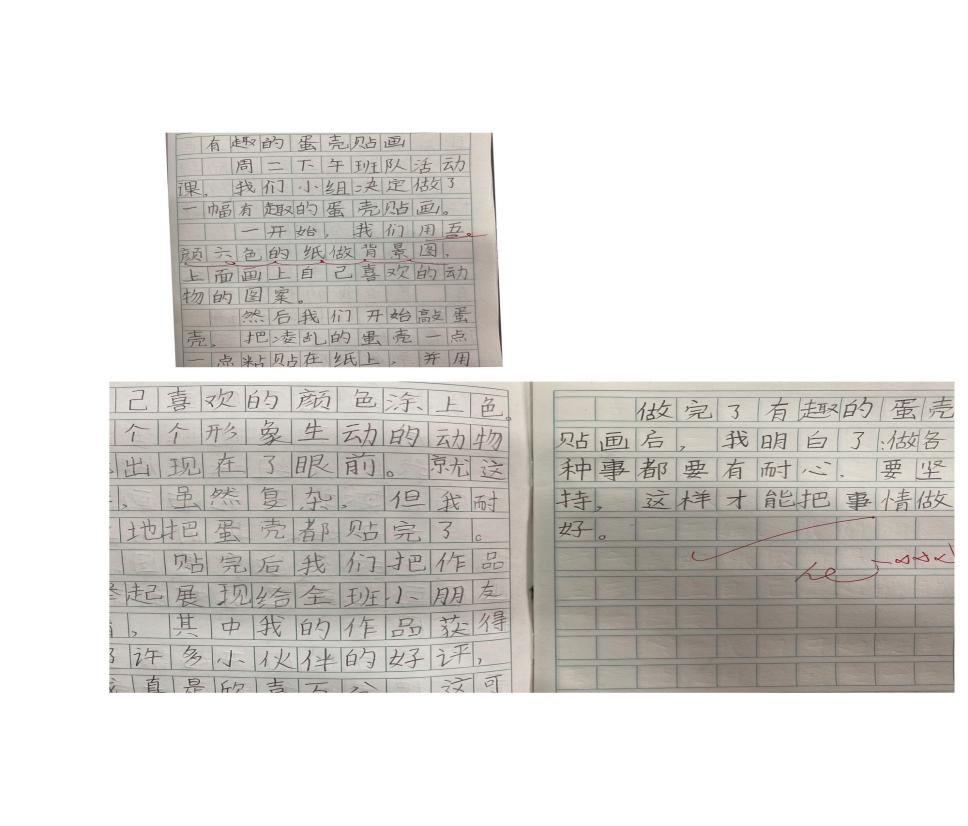 有趣的蛋壳贴画
周二下午班队活动
课，我们小组决定做了
一幅有趣的蛋壳贴画。
一开始，我们用五
颜六色的纸做背景图，
上面画上自己喜欢的动
物的图案。
然后我们开始敲蛋
壳，把凌乱的蛋壳一点
一点粘贴在纸上，并用
己喜欢的颜色涂上色。
个个形象生动的动物
出现在了眼前。就这
，虽然复杂，但我耐
地把蛋壳都贴完了。
贴完后我们把作品
举起展现给全班小朋友
，其中我的作品获得
了许多小伙伴的好评，
真是欣喜万分。这可
做完了有趣的蛋壳
贴画后，我明白了：做各
种事都要有耐心，要坚
持，这样才能把事情做
好。